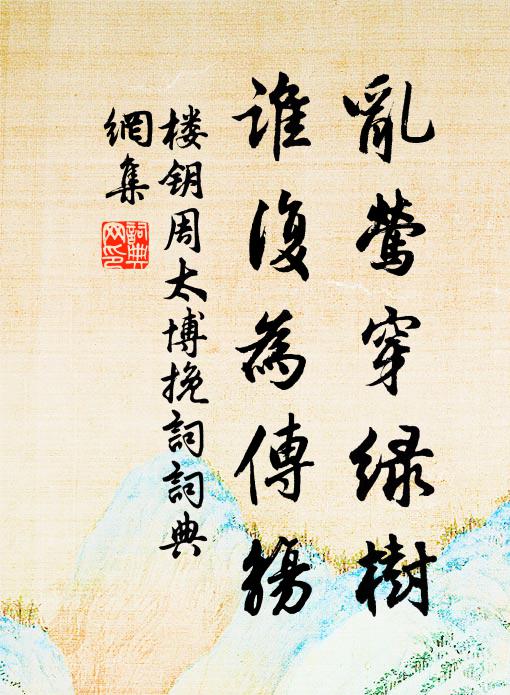 亂鶯穿绿樹
誰復為傳觴
楼钥周太博挽詞詞典
網集
詞典
网印